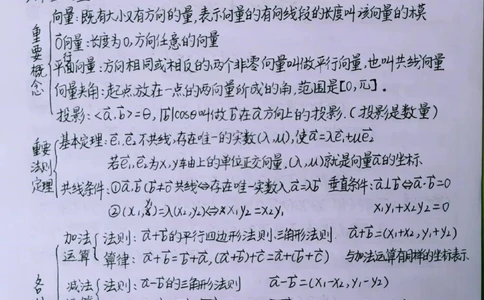 向量:既有大小又有方向的量,表示向量的有向线段的长度叫该向量的模
0向量:长度为0,方向任意的量
平行向量:方向相同或相反的两个非零向量叫做平行向量,也叫共线向量
向量夹角:起点放在一点的两向量所成的角,范围是[0,π].
投影:<a⃗,b⃗>=θ,|b⃗|cosθ叫做b⃗在a⃗方向上的投影.(投影是数量)
重要概念
基本定理:e⃗₁,e⃗₂不共线,存在唯一的实数(λ,μ),使a⃗=λe⃗₁+μe⃗₂
若e⃗₁,e⃗₂为x,y轴上的单位正交向量,(λ,μ)就是向量a⃗的坐标.
重要法则定理
共线条件:①a⃗,b⃗(b⃗≠0⃗)共线⇔存在唯一实数λ,a⃗=λb⃗ 垂直条件:a⃗⊥b⃗⇔a⃗·b⃗=0
②(x₁,y₁)=λ(x₂,y₂)⇔x₁y₂=x₂y₁ x₁y₁+x₂y₂=0
加法运算 法则:a⃗+b⃗的平行四边形法则、三角形法则. a⃗+b⃗=(x₁+x₂,y₁+y₂)
算律:a⃗+b⃗=b⃗+a⃗,(a⃗+b⃗)+c⃗=a⃗+(b⃗+c⃗) 与加法运算有同样的坐标表示
各
减法 法则:a⃗-b⃗的三角形法则 a⃗-b⃗=(x₁-x₂,y₁-y₂)